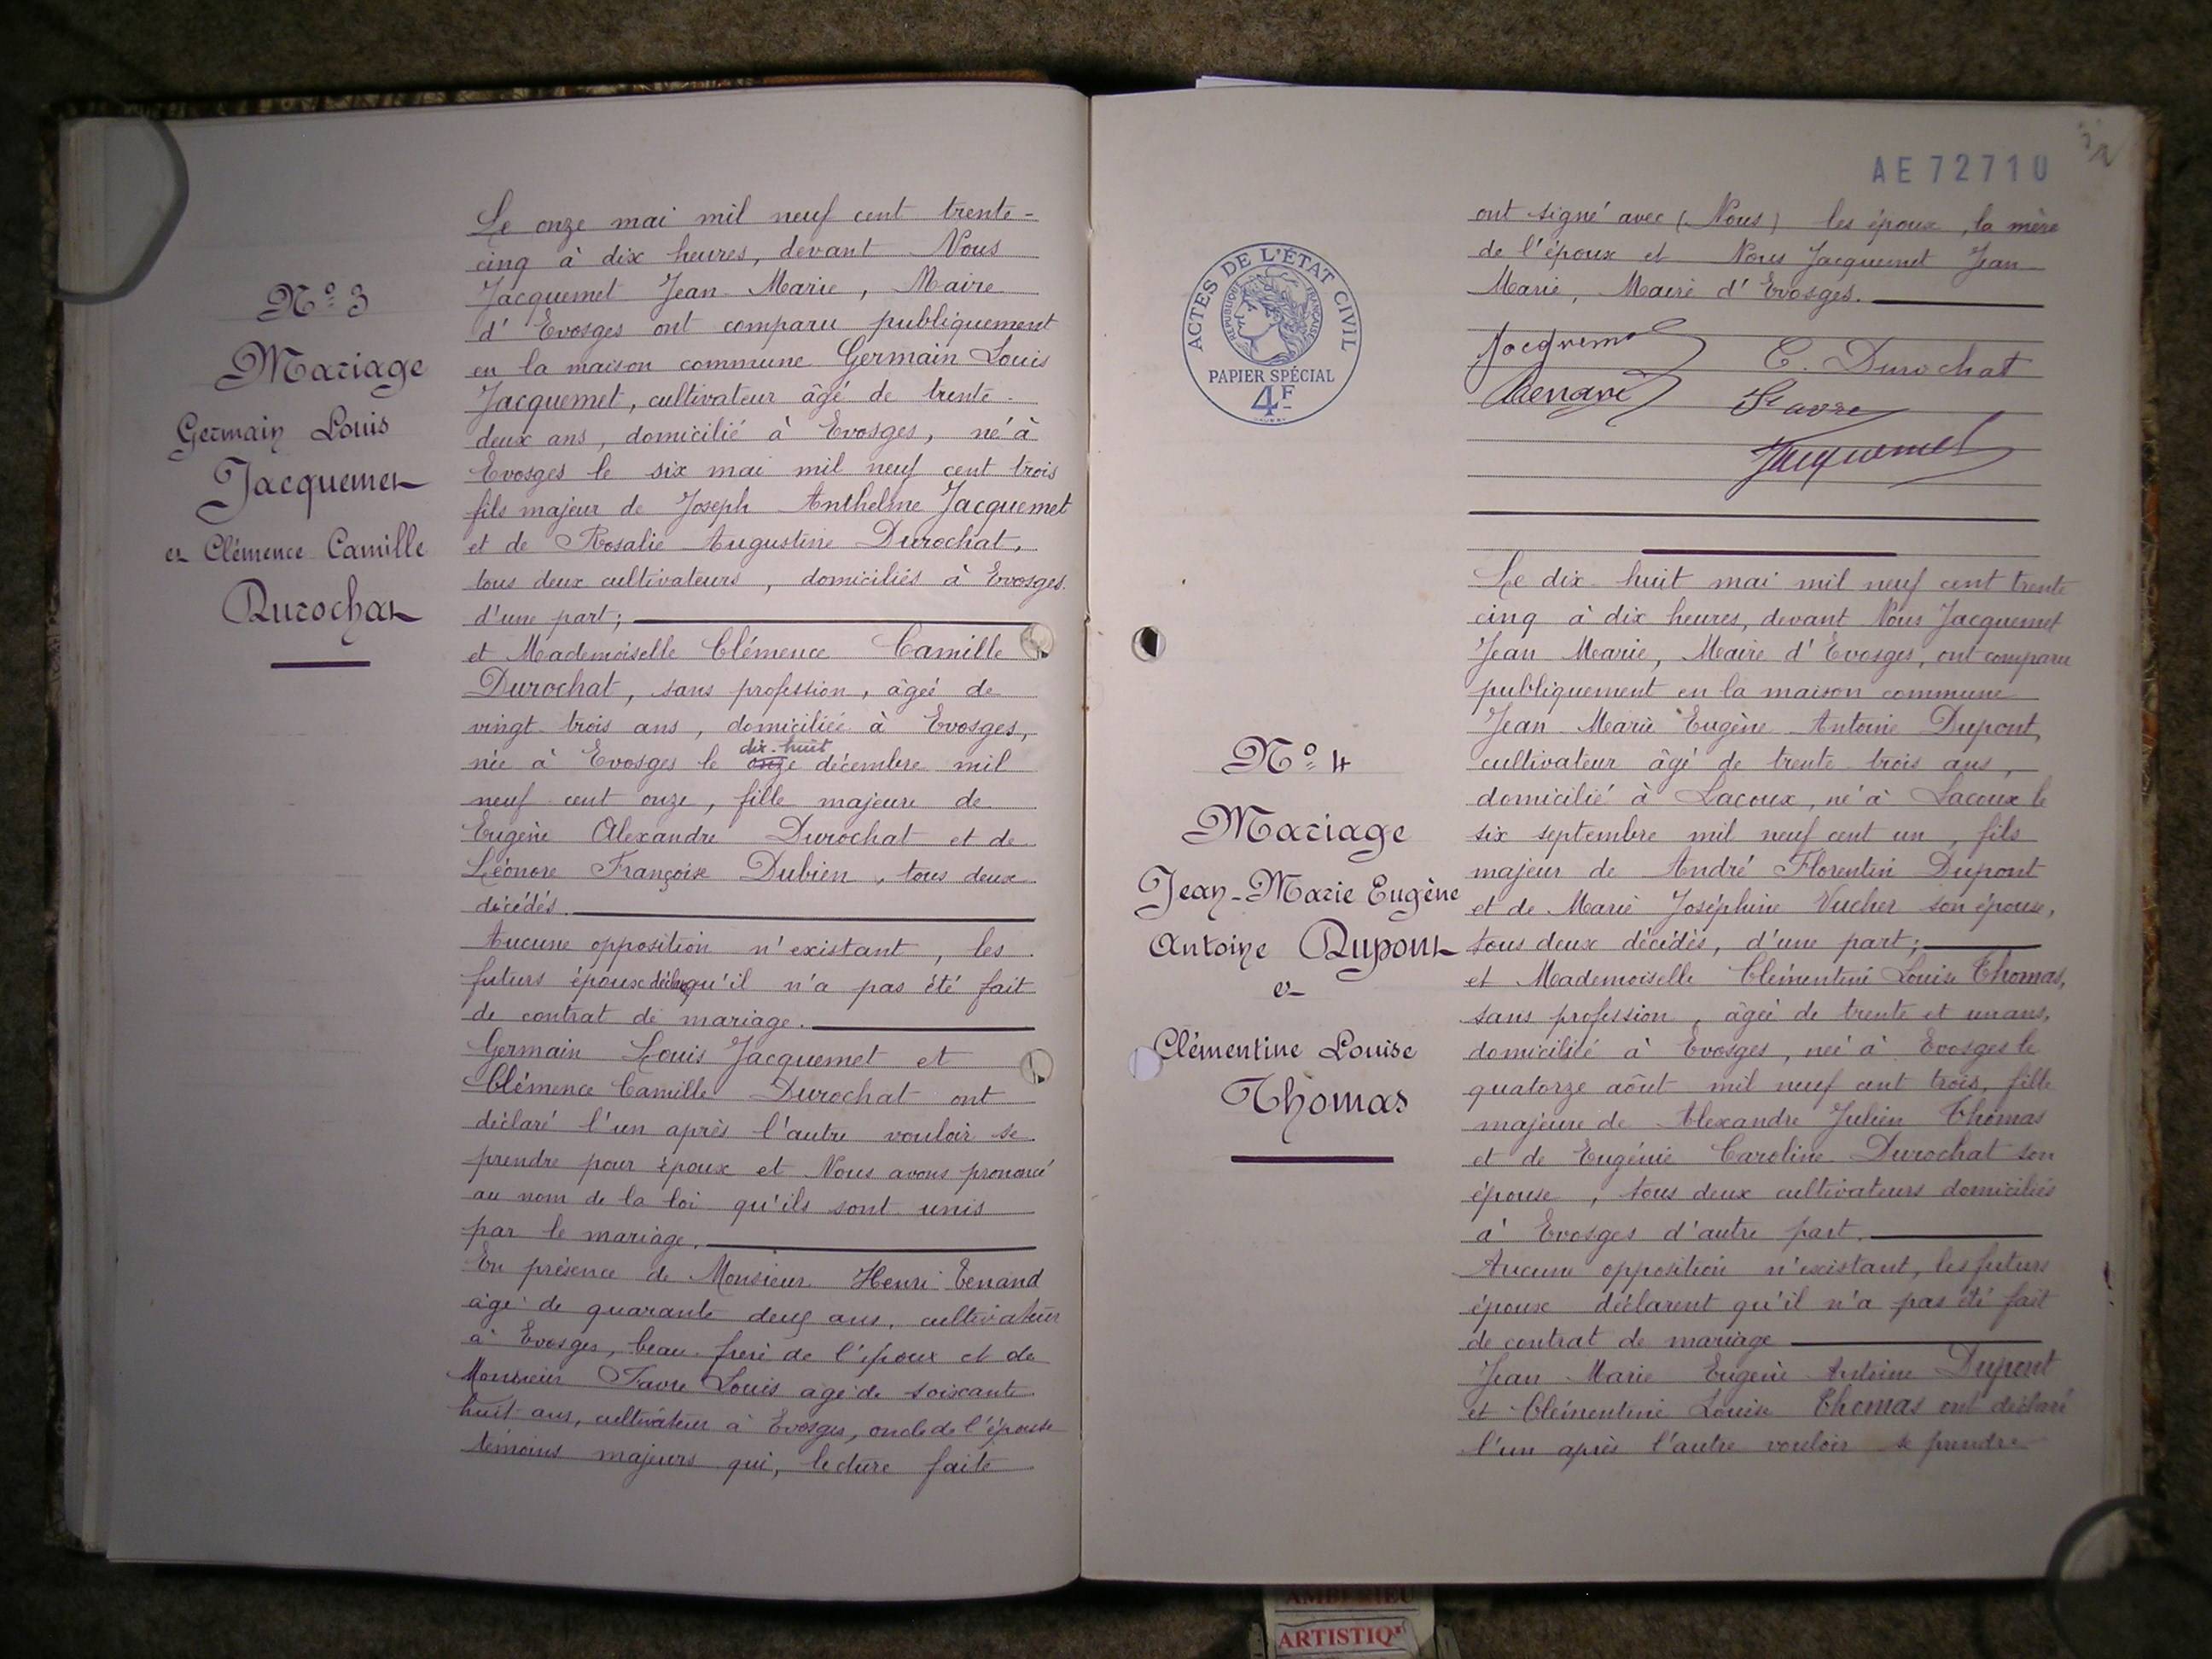 N° 3
Mariage
Germain Louis
Jacquemet
et Clémence Camille
Durochat
Le onze mai mil neuf cent trente-
cinq à dix heures, devant Nous
Jacquemet Jean-Marie, Maire
d'Evosges ont comparu publiquement
en la maison commune Germain Louis
Jacquemet, cultivateur âgé de trente-
deux ans, domicilié à Evosges, né à
Evosges le six mai mil neuf cent trois
fils majeur de Joseph Anthelme Jacquemet
et de Rosalie Augustine Durochat,
tous deux cultivateurs, domiciliés à Evosges.
d'une part;
et Mademoiselle Clémence Camille
Durochat, sans profession, âgée de
vingt-trois ans, domiciliée à Evosges,
dix-huit
née à Evosges le onze décembre mil
neuf cent onze, fille majeure de
Eugène Alexandre Durochat et de
Léonore Françoise Dubien, tous deux
décédés.
Aucune opposition n'existant, les
futurs époux qu'il n'a pas été fait
de contrat de mariage.
Germain Louis Jacquemet et
Clémence Camille Durochat ont
déclaré l'un après l'autre vouloir se
prendre pour époux et Nous avons prononcé
au nom de la loi qu'ils sont unis
par le mariage.
En présence de Monsieur Henri Tenand
âgé de quarante deux ans, cultivateur
à Evosges, beau-frère de l'époux et de
Monsieur Favre Louis âgé de soixante
huit ans, cultivateur à Evosges, oncle de l'épouse
témoins majeurs qui, lecture faite
AE 72710
ont signé avec (Nous) les époux, la mère
de l'époux et Nous Jacquemet Jean
Marie, Maire d'Evosges.
Jacquemet
C. Durochat
Tenand
Favre
Jacquemet
ACTES DE L'ÉTAT CIVIL
RÉPUBLIQUE FRANÇAISE
PAPIER SPÉCIAL
4F
N° 4
Mariage
Jean-Marie Eugène
Antoine Dupont
et
Clémentine Louise
Thomas
Le dix-huit mai mil neuf cent trente
cinq à dix heures, devant Nous Jacquemet
Jean Marie, Maire d'Evosges, ont comparu
publiquement en la maison commune
Jean Marie Eugène Antoine Dupont,
cultivateur âgé de trente-trois ans,
domicilié à Lacoux, né à Lacoux le
six septembre mil neuf cent un, fils
majeur de André Florentin Dupont
et de Marie Joséphine Vucher son épouse,
tous deux décédés, d'une part;
et Mademoiselle Clémentine Louise Thomas,
sans profession, âgée de trente et un ans,
domiciliée à Evosges, née à Evosges le
quatorze août mil neuf cent trois, fille
majeure de Alexandre Julien Thomas
et de Eugénie Caroline Durochat son
épouse, tous deux cultivateurs domiciliés
à Evosges d'autre part.
Aucune opposition n'existant, les futurs
époux déclarent qu'il n'a pas été fait
de contrat de mariage
Jean Marie Eugène Antoine Dupont
et Clémentine Louise Thomas ont déclaré
l'un après l'autre vouloir se prendre
ARTISTIQ